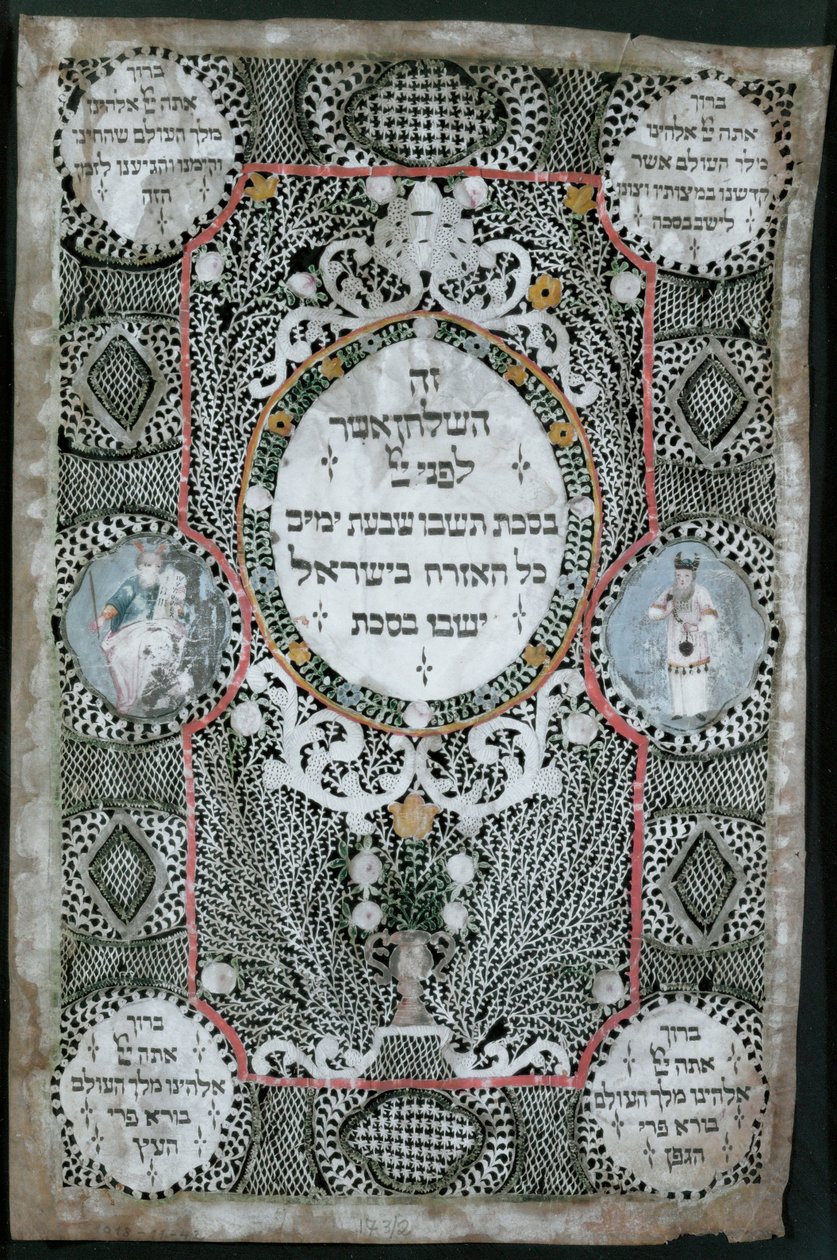 ברוך
אתה יי אלהינו
מלך העולם אשר
קדשנו במצותיו וצונו
לישב בסכה
ברוך
אתה יי אלהינו
מלך העולם שהחינו
וקימנו והגיענו לזמן
הזה
זה
השלחן אשר
לפני יי
בסכת תשבו שבעת ימים
כל האזרח בישראל
ישבו בסכת
ברוך
אתה יי
אלהינו מלך העולם
בורא פרי
הגפן
ברוך
אתה יי
אלהינו מלך העולם
בורא פרי
העץ
173/2